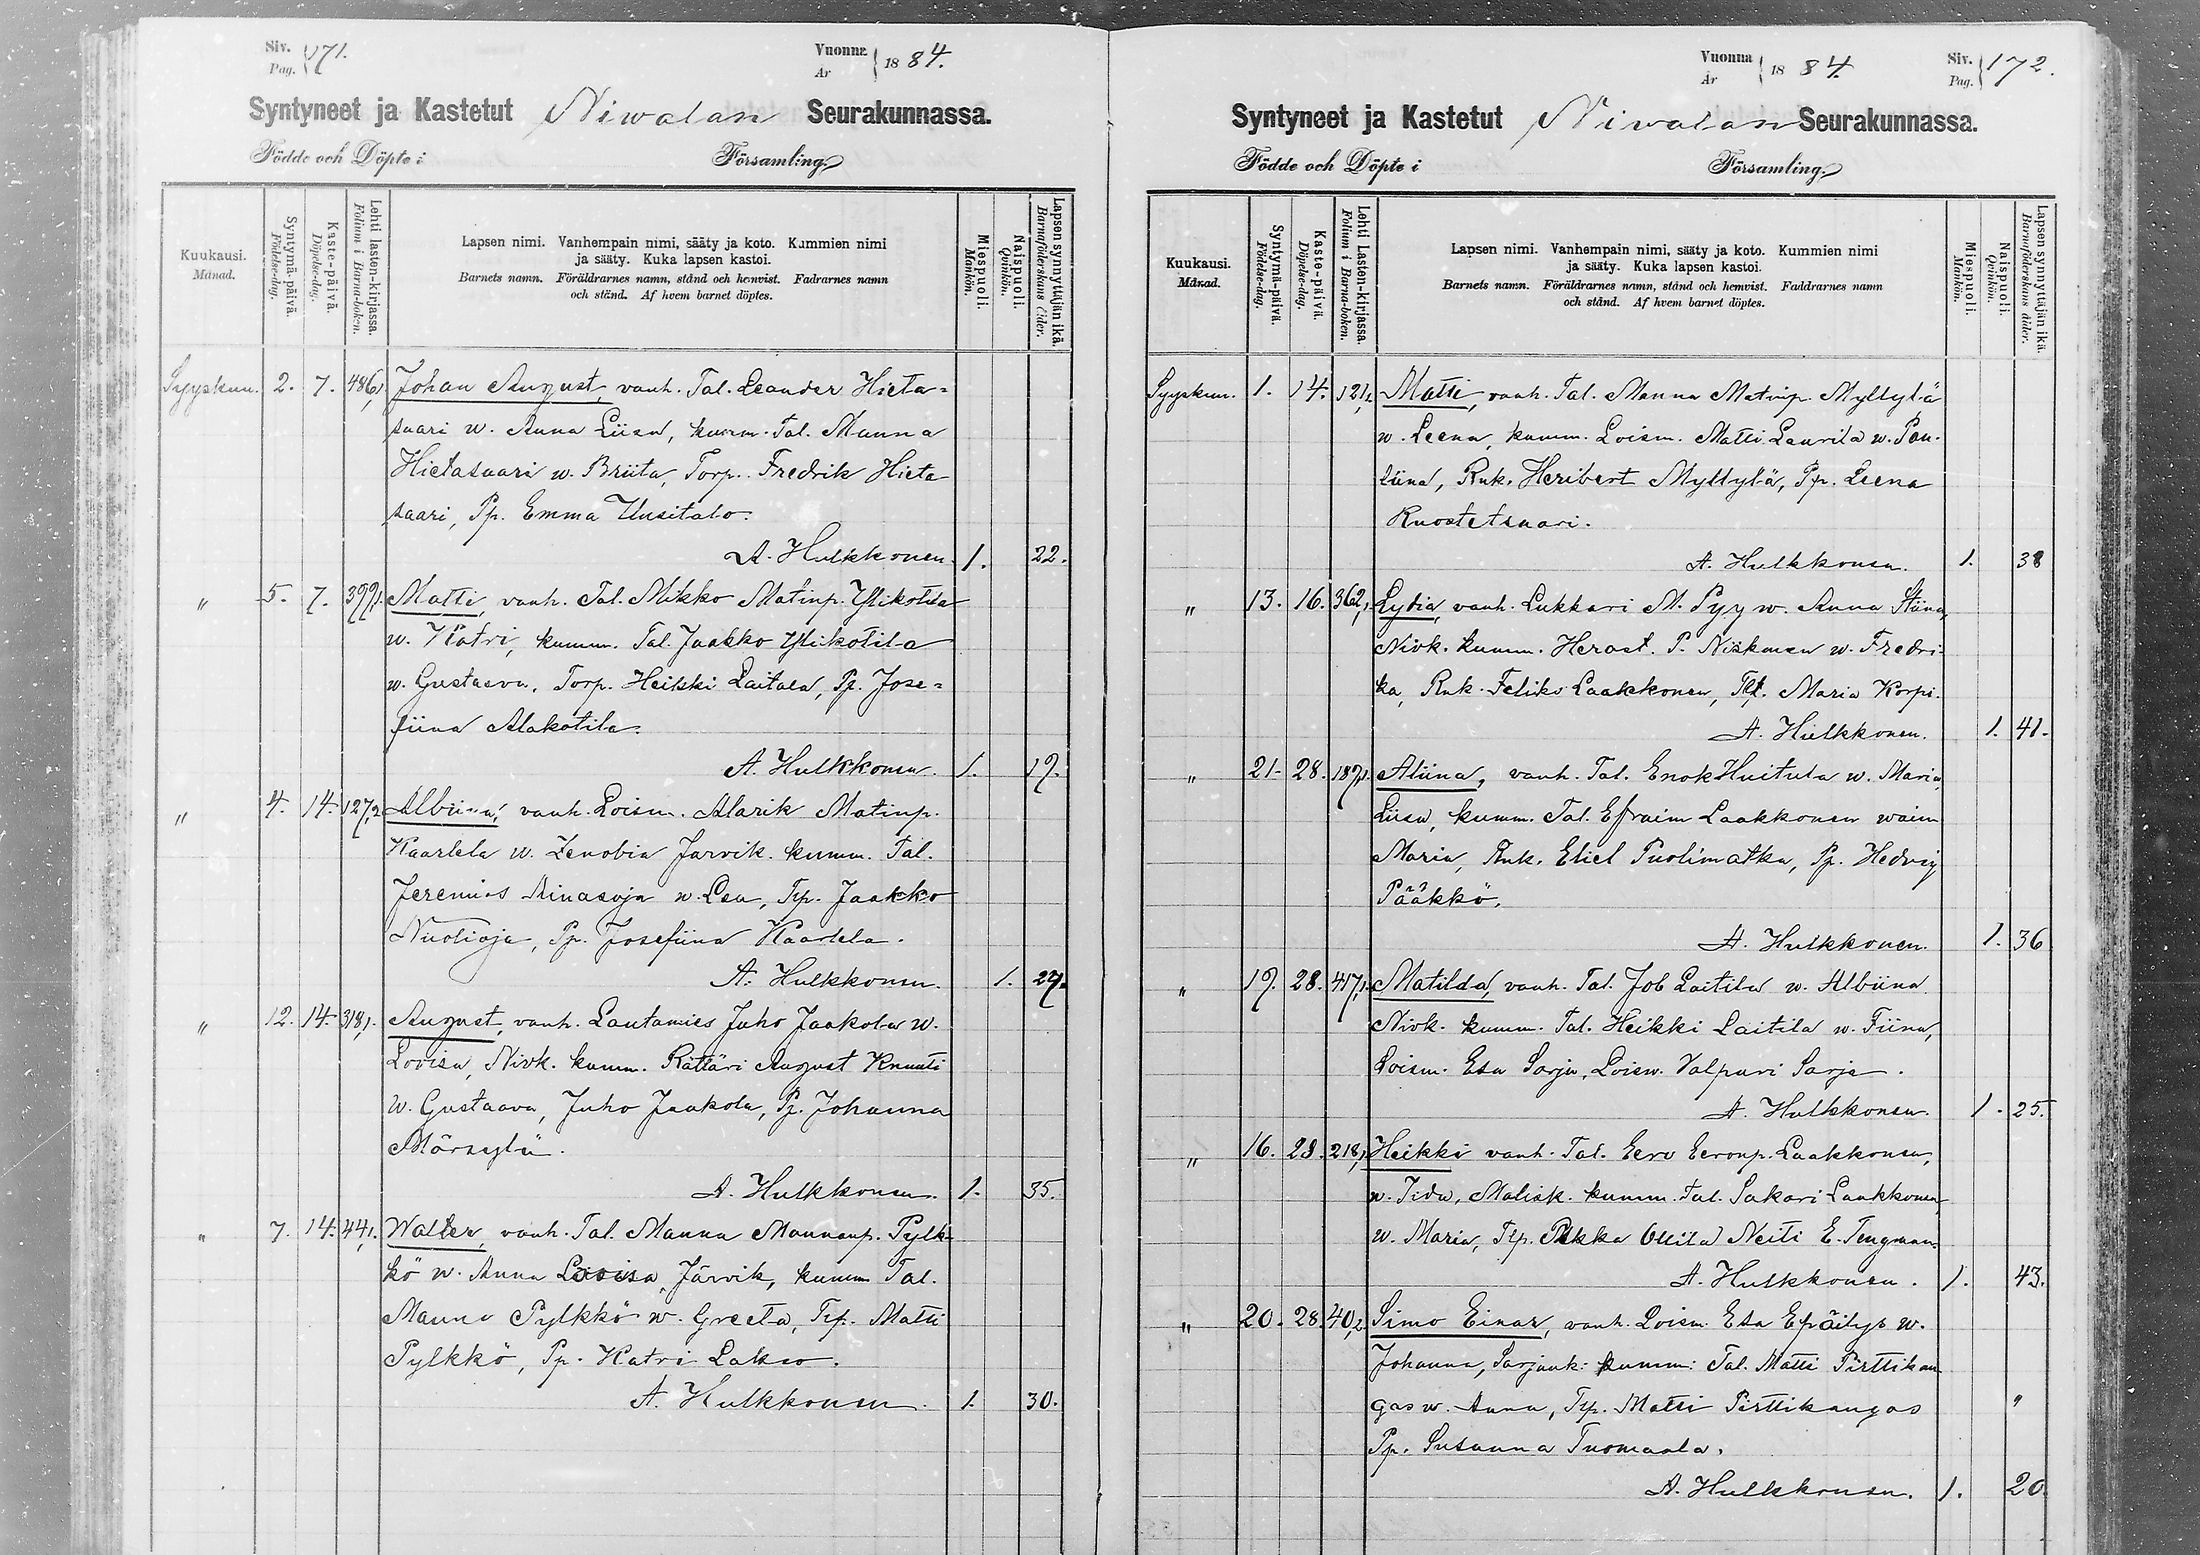 Siv. Pag. 171. Vuonna År 1884.
Syntyneet ja Kastetut Niwalan Seurakunnassa.
Födde och Döpte i Församling.
Kuukausi. Månad.
Syntymä-päivä. Födelse-dag.
Kaste-päivä. Döpelse-dag.
Lehti lasten-kirjassa. Folium i Barna-boken.
Lapsen nimi. Vanhempain nimi, sääty ja koto. Kummien nimi
ja sääty. Kuka lapsen kastoi.
Barnets namn. Föräldrarnes namn, stånd och hemvist. Fadrarnes namn
och stånd. Af hvem barnet döptes.
Miespuoli. Mankön.
Naispuoli. Qvinkön.
Lapsen synnyttäjän ikä. Barnaföderskans ålder.
Syyskuu. 2. 7. 486,1 Johan August, vanh. Tal. Leander Hieta-
saari w. Anna Liisa, kumm. Tal. Manna
Hietasaari w. Briita, Torp. Fredrik Hieta
saari, Pp. Emma Uusitalo.
A. Hulkkonen. 1. 22.
" 5. 7. 399,1. Matti, vanh. Tal. Mikko Matinp. Ylikotila
w. Katri, kumm. Tal. Jaakko Ylikotila
w. Gustaava, Torp. Heikki Laitala, Pp. Jose-
fiina Alakotila.
A. Hulkkonen. 1. 19.
" 4. 14. 127,2 Albiina, vanh. Loism. Alarik Matinp.
Kaarlela w. Zenobia Jarvik. kumm. Tal.
Jeremias Ainasoja w. Lea, Tp. Jaakko
Nuolioja, Pp. Josefiina Kaarlela.
A. Hulkkonen. 1. 27.
" 12. 14. 318,1. August, vanh. Lautamies Juho Jaakola w.
Lovisa, Nivk. kumm. Rättäri August Knuuti
w. Gustaava, Juho Jaakola, Pp. Johanna
Märsylä.
A. Hulkkonen. 1. 35.
" 7. 14. 44,1. Walter, vanh. Tal. Manna Mannanp. Pylk-
kö w. Anna Lovisa, Järvik, kumm Tal.
Manno Pylkkö w. Greeta, Tp. Matti
Pylkkö, Pp. Katri Lakso.
A. Hulkkonen. 1. 30.
Vuonna År 1884. Siv. Pag. 172.
Syntyneet ja Kastetut Niwalan Seurakunnassa.
Födde och Döpte i Församling.
Kuukausi. Månad.
Syntymä-päivä. Födelse-dag.
Kaste-päivä. Döpelse-dag.
Lehti Lasten-kirjassa. Folium i Barna-boken.
Lapsen nimi. Vanhempain nimi, sääty ja koto. Kummien nimi
ja sääty. Kuka lapsen kastoi.
Barnets namn. Föräldrarnes namn, stånd och hemvist. Faddrarnes namn
och stånd. Af hvem barnet döptes.
Miespuoli. Mankön.
Naispuoli. Qvinkön.
Lapsen synnyttäjän ikä. Barnaföderskans ålder.
Syyskuu. 1. 14. 121,1. Matti, vanh. Tal. Manna Matinp. Myllylä
w. Leena, kumm. Loism. Matti Laurila w. Pau-
liina, Rnk. Heribert Myllylä, Pp. Leena
Ruostetsaari.
A. Hulkkonen. 1. 38
" 13. 16. 362,1 Lydia, vanh. Lukkari M. Pyy w. Anna Stiina,
Nivk. kumm. Herast. P. Niskanen w. Fredri-
ka, Rnk. Feliks Laakkonen, Maria Korpi.
A. Hulkkonen. 1. 41.
" 21. 28. 187,1. Aliina, vanh. Tal. Enok Huitula w. Maria
Liisa, kumm. Tal. Efraim Laakkonen waim
Maria, Rnk. Eliel Puolimatka, Pp. Hedvig
Pääkkö.
A. Hulkkonen. 1. 36
" 19. 28. 417,1. Matilda, vanh. Tal. Job Laitila w. Albiina
Nivk. kumm. Tal. Heikki Laitila w. Fiina,
Loism. Esa Sarja, Loisw. Valpuri Sarja.
A. Hulkkonen. 1. 25.
" 16. 28. 218,1 Heikki vanh. Tal. Eero Eeronp. Laakkonen,
w. Iida, Malisk. kumm. Tal. Sakari Laakkonen
w. Maria, Tp. Pekka Ollila Neiti E. Tengman.
A. Hulkkonen. 1. 43.
" 20. 28. 40,2 Simo Einar, vanh. Loism. Esa w.
Johanna, Sarjank. kumm: Tal. Matti Pirttikan
gas w. Anna, Tp. Matti Pirttikangas "
Pp. Susanna Tuomaala.
A. Hulkkonen. 1. 20.